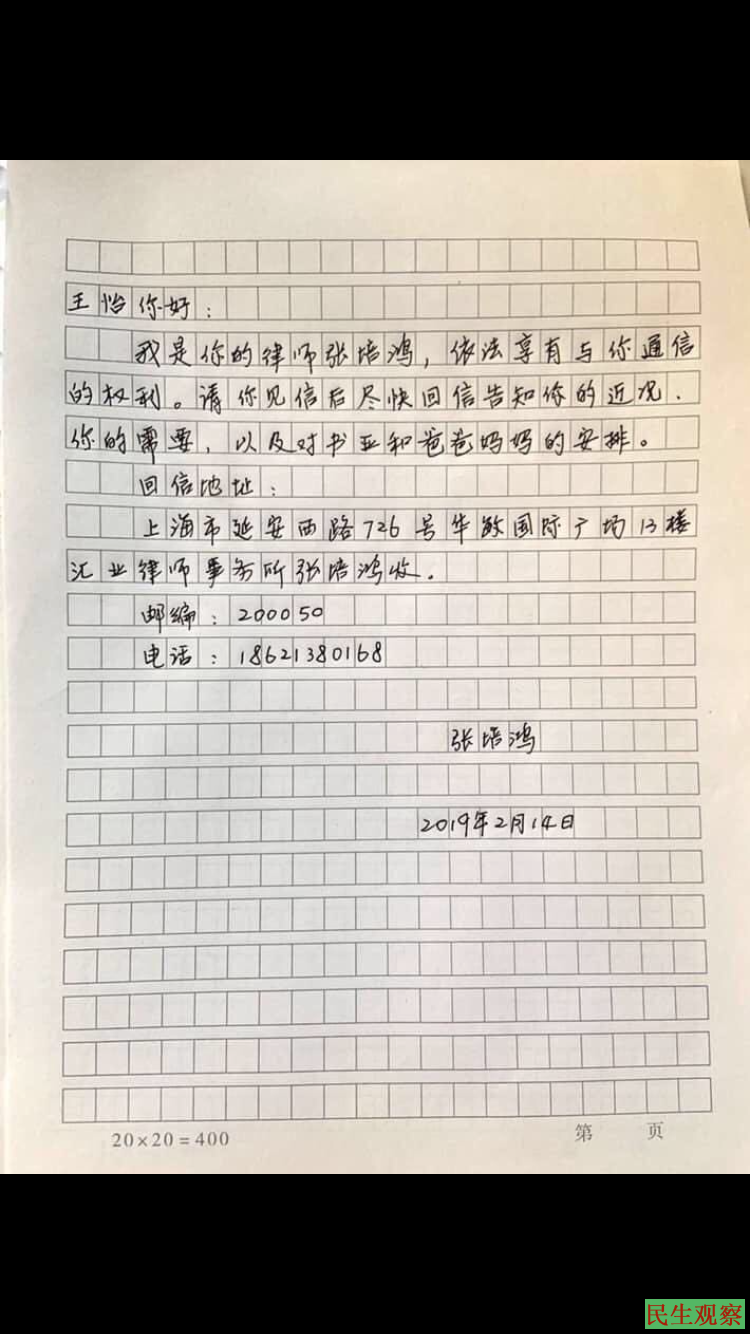 王怡你好：
我是你的律师张培鸿，依法享有与你通信
的权利。请你见信后尽快回信告知你的近况、
你的需要，以及对书亚和爸爸妈妈的安排。
回信地址：
上海市延安西路726号华敏国际广场13楼
汇业律师事务所张培鸿收。
邮编：200050
电话：18621380168
张培鸿
2019年2月14日
20×20=400
第 页
民生观察